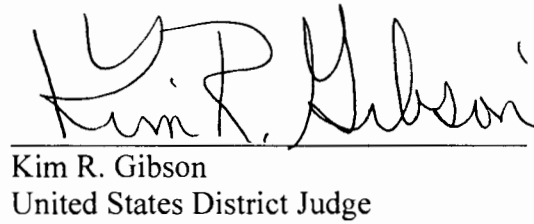 Kim R. Gibson
Kim R. Gibson
United States District Judge